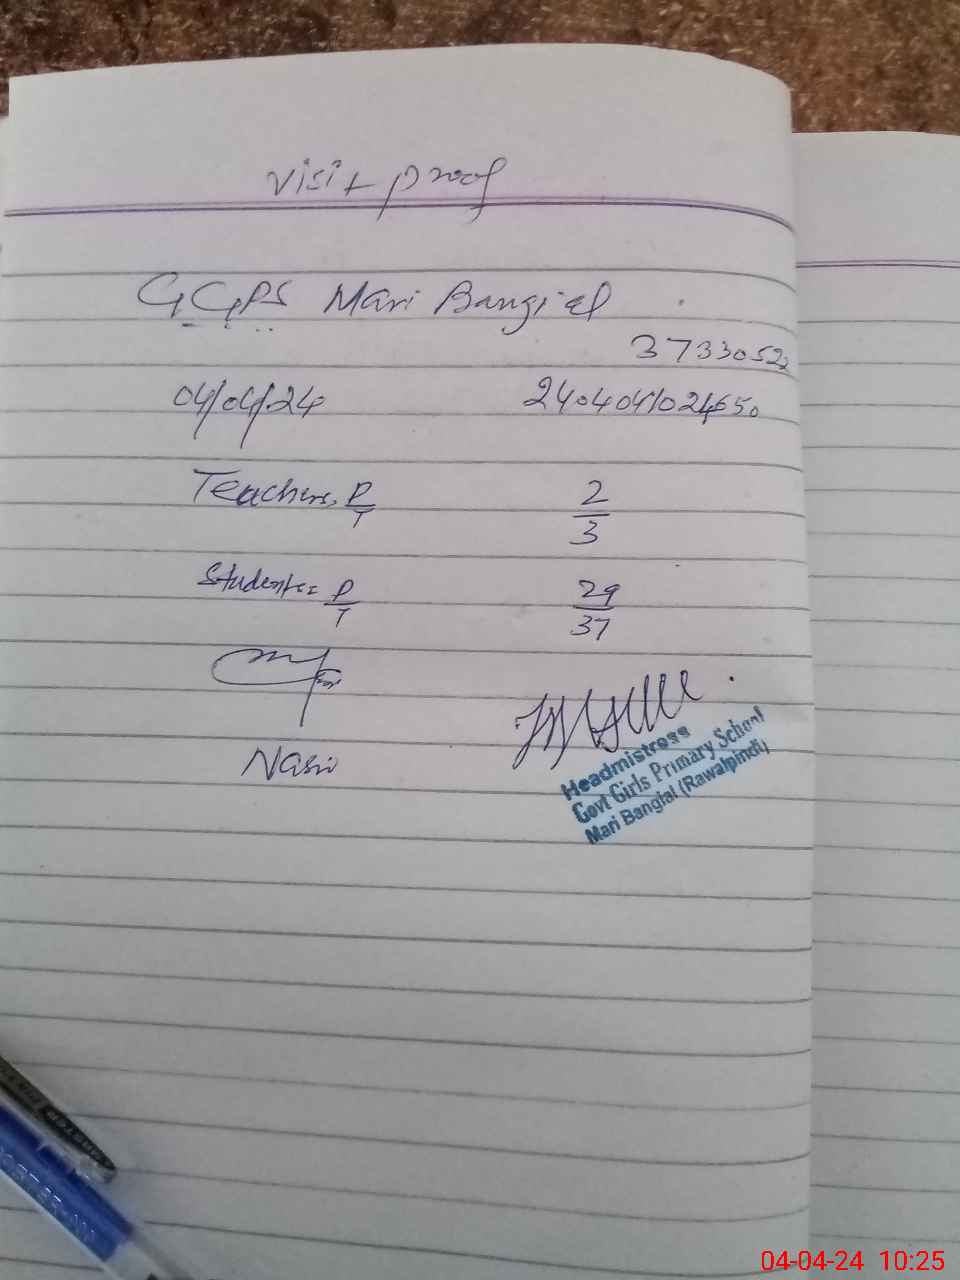 visit proof
GGPS Mari Bangial
37330522
04/04/24 2404041024650
Teachers, P/T 2/3
Students= P/T 29/37
Nasir
Headmistress
Govt Girls Primary School
Mari Bangial (Rawalpindi)
04-04-24 10:25